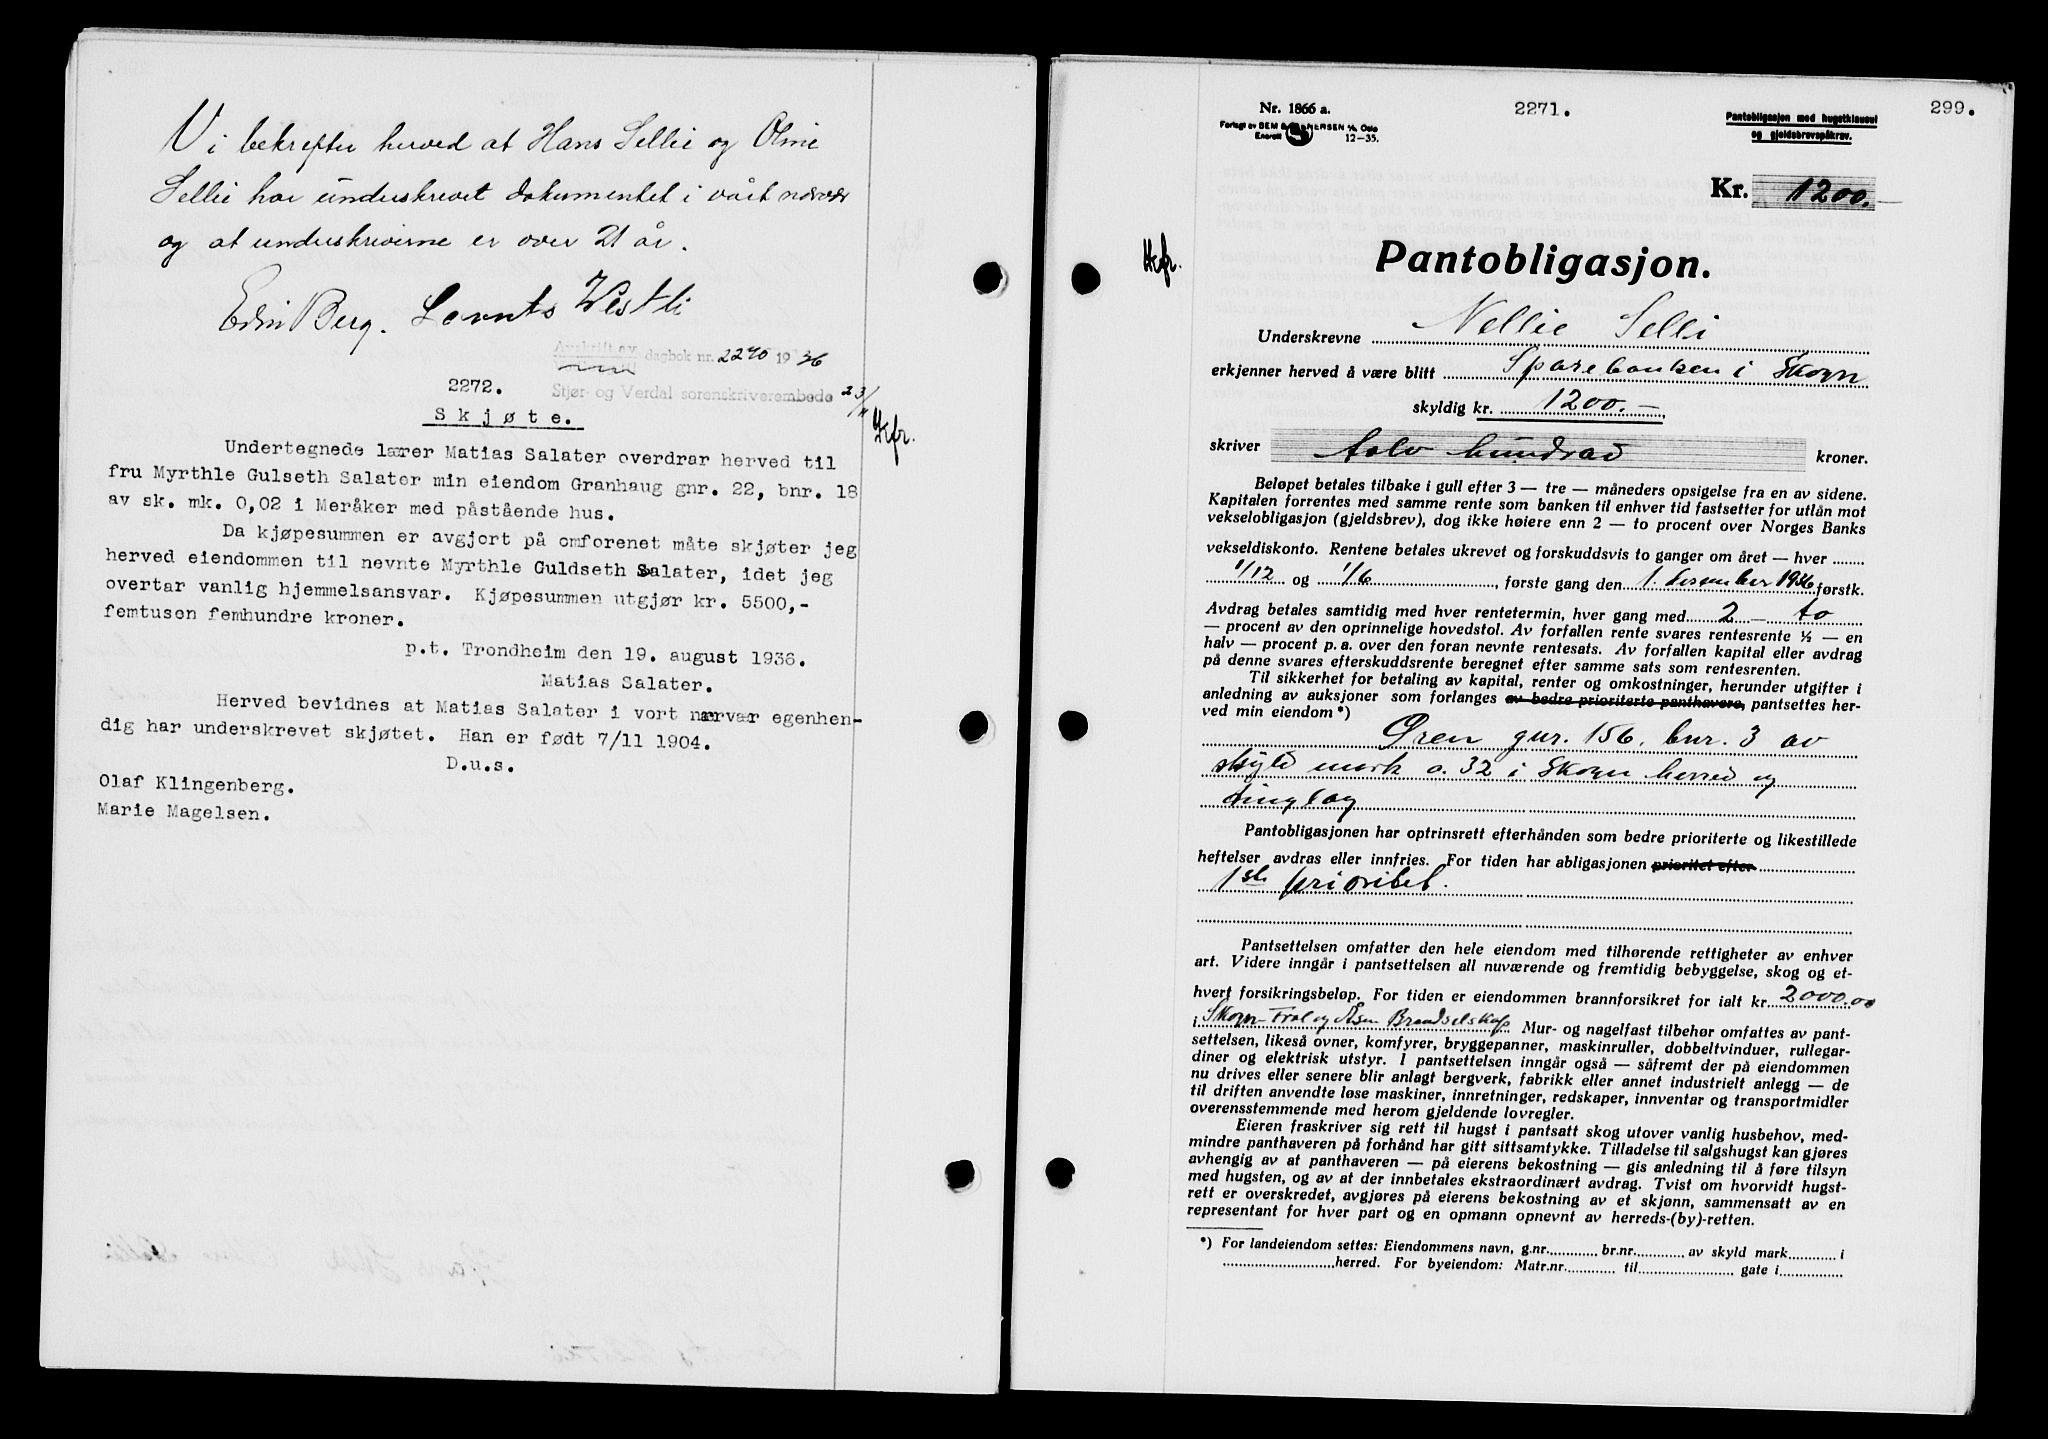 Vi bekrefter herved at Hans Sellie og Oline
Sellie har underskrevet dokumentet i vårt nærvær
og at underskriverne er over 21 år.
Edin Berg. Lornts Westli
Avskrift av dagbok nr. 2270 1936
Stjør- og Verdal sorenskriverembede 23/11
2272.
Skjøte.
Hefr.
Undertegnede lærer Matias Salater overdrar herved til
fru Myrthle Gulseth Salater min eiendom Granhaug gnr. 22, bnr. 18
av sk. mk. 0,02 i Meråker med påstående hus.
Da kjøpesummen er avgjort på omforenet måte skjøter jeg
herved eiendommen til nevnte Myrthle Guldseth Salater, idet jeg
overtar vanlig hjemmelsansvar. Kjøpesummen utgjør kr. 5500,-
femtusen femhundre kroner.
p.t. Trondheim den 19. august 1936.
Matias Salater.
Herved bevidnes at Matias Salater i vort nærvær egenhen-
dig har underskrevet skjøtet. Han er født 7/11 1904.
D.u.s.
Olaf Klingenberg.
Marie Magelsen.
Nr. 1866 a.
Forlagt av SEM & STENERSEN A/S Oslo
Enerett 12-35.
2271.
Pantobligasjon med hugstklausul
og gjeldsbrevspåkrav.
299.
Kr. 1200.-
Hefr.
Pantobligasjon.
Underskrevne Nellie Selli
erkjenner herved å være blitt Sparebanken i Skogn
skyldig kr. 1200.-,
skriver tolv hundrad kroner.
Beløpet betales tilbake i gull efter 3 — tre — måneders opsigelse fra en av sidene.
Kapitalen forrentes med samme rente som banken til enhver tid fastsetter for utlån mot
vekselobligasjon (gjeldsbrev), dog ikke høiere enn 2 — to procent over Norges Banks
vekseldiskonto. Rentene betales ukrevet og forskuddsvis to ganger om året — hver
1/12 og 1/6, første gang den 1. desember 1936 førstk.
Avdrag betales samtidig med hver rentetermin, hver gang med 2 — to
— procent av den oprinnelige hovedstol. Av forfallen rente svares rentesrente ½ — en
halv — procent p. a. over den foran nevnte rentesats. Av forfallen kapital eller avdrag
på denne svares efterskuddsrente beregnet efter samme sats som rentesrenten.
Til sikkerhet for betaling av kapital, renter og omkostninger, herunder utgifter i
anledning av auksjoner som forlanges av bedre prioriterte panthavere, pantsettes her-
ved min eiendom*)
Øren gnr. 156, bnr. 3 av
skyld mark 0.32 i Skogn herred og
tinglag
Pantobligasjonen har optrinsrett efterhånden som bedre prioriterte og likestillede
heftelser avdras eller innfries. For tiden har abligasjonen prioritet efter
1ste prioritet.
Pantsettelsen omfatter den hele eiendom med tilhørende rettigheter av enhver
art. Videre inngår i pantsettelsen all nuværende og fremtidig bebyggelse, skog og et-
hvert forsikringsbeløp. For tiden er eiendommen brannforsikret for ialt kr. 2000.00
i Skogn-Frol og Åsen Brandselskap Mur- og nagelfast tilbehør omfattes av pant-
settelsen, likeså ovner, komfyrer, bryggepanner, maskinruller, dobbeltvinduer, rullegar-
diner og elektrisk utstyr. I pantsettelsen inngår også — såfremt der på eiendommen
nu drives eller senere blir anlagt bergverk, fabrikk eller annet industrielt anlegg — de
til driften anvendte løse maskiner, innretninger, redskaper, innventar og transportmidler
overensstemmende med herom gjeldende lovregler.
Eieren fraskriver sig rett til hugst i pantsatt skog utover vanlig husbehov, med-
mindre panthaveren på forhånd har gitt sittsamtykke. Tilladelse til salgshugst kan gjøres
avhengig av at panthaveren — på eierens bekostning — gis anledning til å føre tilsyn
med hugsten, og av at der innbetales ekstraordinært avdrag. Tvist om hvorvidt hugst-
rett er overskredet, avgjøres på eierens bekostning av et skjønn, sammensatt av en
representant for hver part og en opmann opnevnt av herreds-(by)-retten.
*) For landeiendom settes: Eiendommens navn, g.nr. br.nr. av skyld mark i
herred. For byeiendom: Matr.nr. til gate i